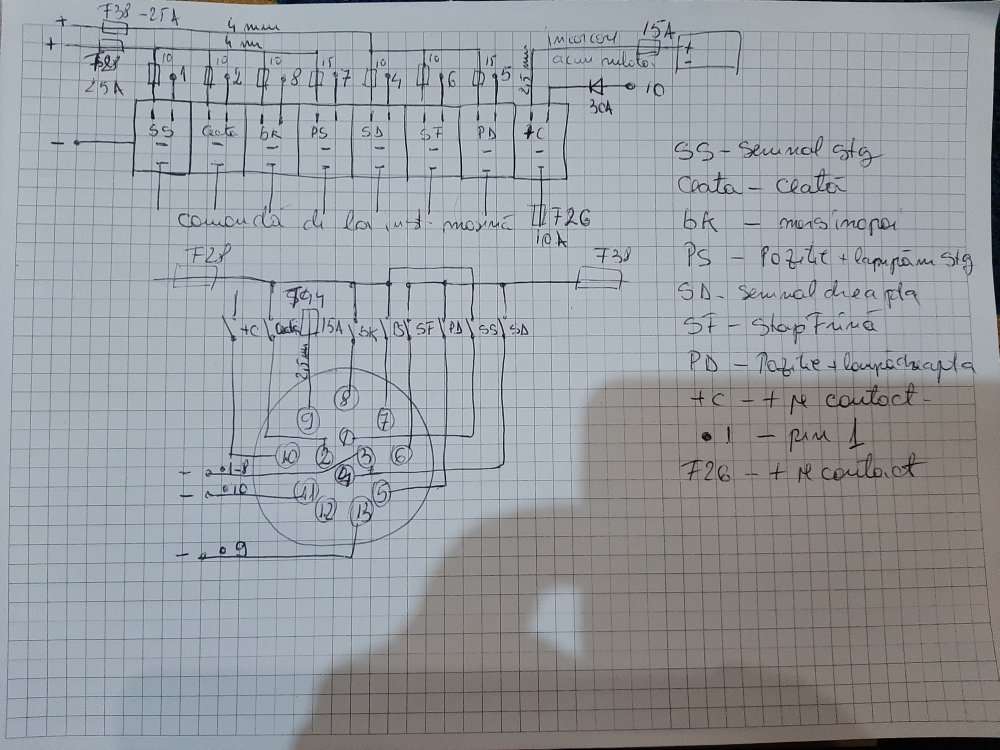 + F38 - 25A 4 mm
+ 4 m
F28
25A
10 1 10 2 10 8 15 7 10 4 10 6 15 5
2,5 mm
15A
+
-
30A
10
SS Ceata bk PS SD SF PD +C
-
comandă de la inst. mașină
F26
10A
F28
F38
F44
15A
+C Ceata bK PS SF PD SS SD
2,5 mm
8
9 7
1
10 2 3 6
- 1-8
4
- 10
11 5
12 13
- 9
SS - Semnal Stg
Ceata - Ceată
bk - marsinapoi
PS - Pozitie + lampăm stg
SD - Semnal dreapta
SF - Stop Frînă
PD - Pozitie + lampă dreapta
+C - + pe contact
• 1 - pin 1
F26 - + pe contact